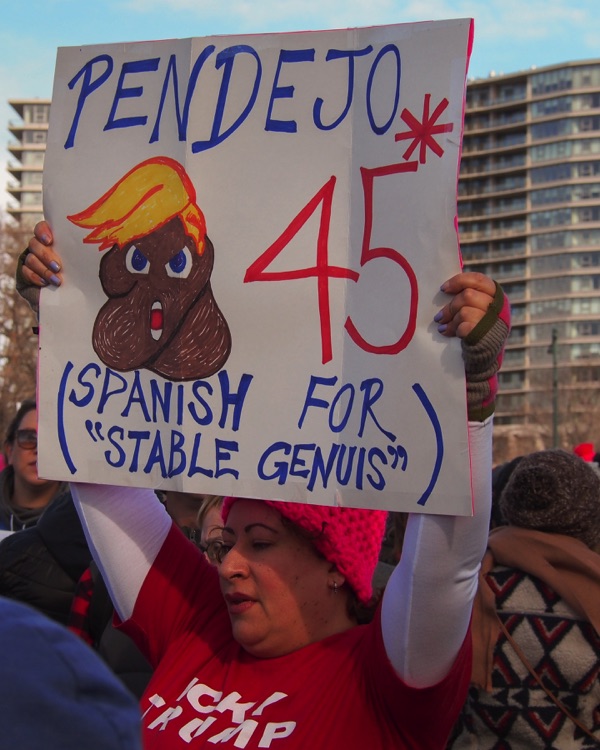 PENDEJO
45*
(SPANISH FOR
"STABLE GENUIS")
ICK!
TRUMP